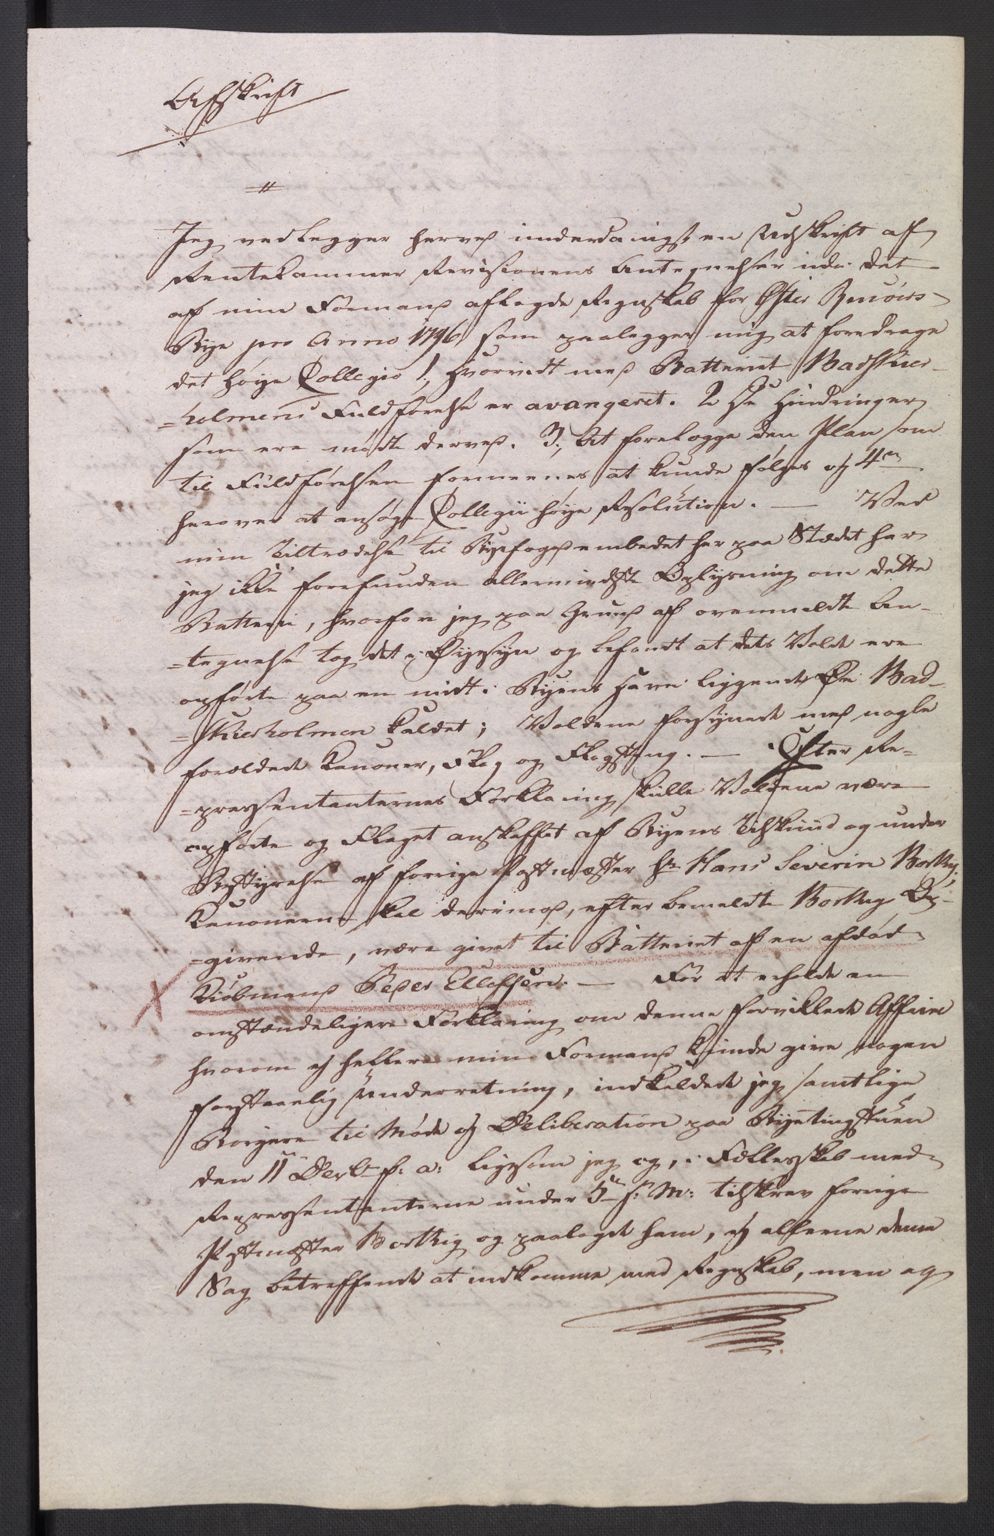 Afskrift
"
Jeg vedlegger herved underdanigst en Udskrift af
Rentekammer Revisionens Antegnelser udi det
af min Formand aflagde Regnskab for Øster Riisøers
Bye pro Anno 1796 som paalegger mig at foredrage
det høye Collegio 1, hvorvidt med Batteriet Badstue-
=holmens Fuldførelse er avangeret. 2 De Hindringer
som ere mødt derved. 3, At forelegge den Plan som
til Fuldførelsen formeenes at kunde følges og 4de
herover at ansøge Collegii høye Resolution. — Ved
min Tiltrædelse til Byefoged embedet her paa Stædet har
jeg ikke forefunden allermindste Oplysning om dette
Batterie, hvorfore jeg paa Grund af ovenmeldte An-
=tegnelse tog det i Øyesyn og befandt at dets Volde ere
opførte paa en midt i Byens Havn liggende Øe Bad-
=stueholmen kaldet; Voldene forsynede med nogle
forældede Canoner, Flag og Flagstang. — Efter Re-
=præsentanternes Forklaring skulle Voldene være
opførte og Flaget anskaffet af Byens Tilskud og under
Bestyrelse af forrige Postmæster Hr Hans Severin Borthig;
Canonerne skal derimod, efter bemeldte Borthigs Op-
=givende, være givet til Batteriet af en afdød
Kiøbmand Peder Ellefsen. — For at erholde en
omstændeligere Forklaring om denne forviklede Affaire
hvorom ej heller min Formand kunde give nogen
forstaaelig Underretning, indkaldede jeg samtlige
Borgere til Møde og Deliberation paa Byetingstuen
den 11 Decbr f: a: ligesom jeg og, i Fællesskab med
Repræsentanterne under 5te f: M: tilskrev forrige
Postmæster Borthig og paalagde ham, og alleene denne
Sag betreffende at indkomme med Regnskab, men og